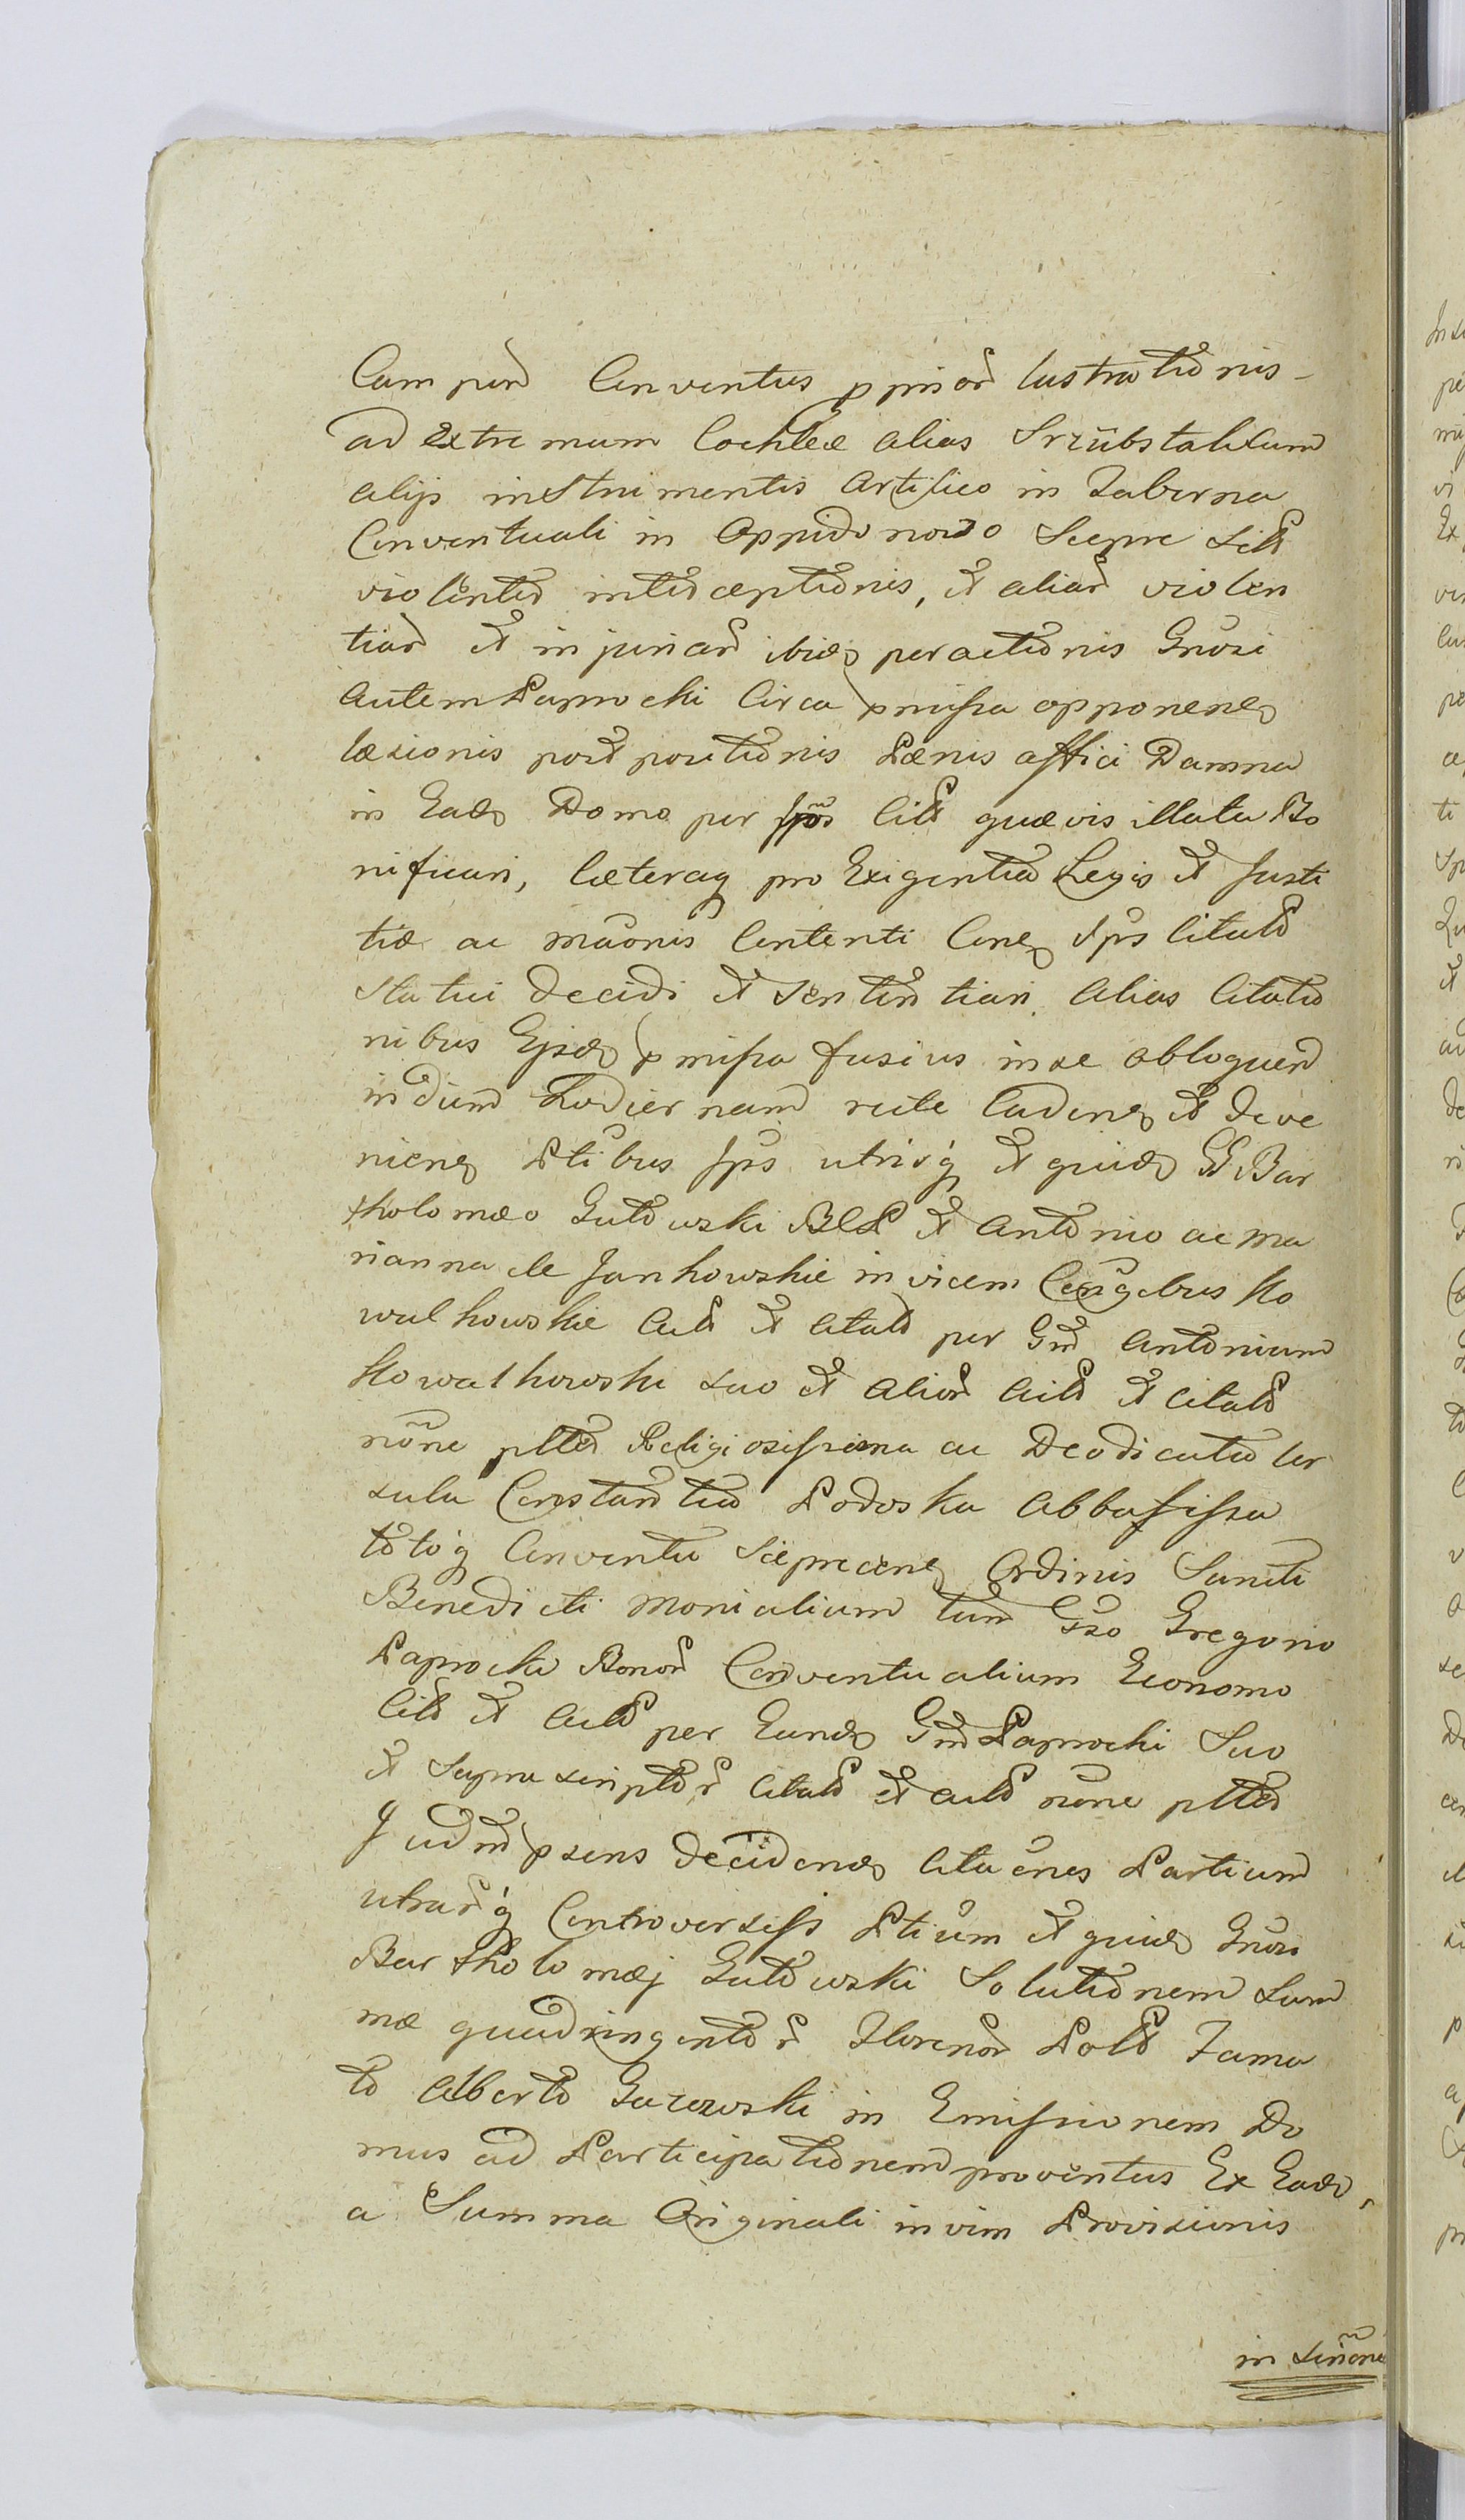 Cum pend Conventus p priord lustrationis
ad Extremum Cochleæ alias Srzübstakum
alijs instrumentis Artifico in Taberna
Conventuali in Oppido novo Sierpc sitd
violenter interceptionis, et aliard violen
tiard et injuriard ibid peractionis Gnosi
Autem Paprocki Circa pmissa opponen
læsionis postpositionis Pænis affici Damna
in Ead Domo per Ipos Citd quævis illata Bo
nificari, Cæteraq pro Exigentia Legis et Justi
tiæ ac mãonis Contenti Con Ips Citatd
Statui Decidi et Sententiari. Alias Citatio
nibus Ejsd pmissa fusius in se obloquend
in Diem Hodiernam rite Caden et deve
nien Ptibus Ips utrisq et quid GG Bar
tholomæo Gutowski BCP et Antonio ac Ma
rianna de Jankowskie invicem Conjgibus Ko
walkowskie Actd et Citatd per Gnd Antonium
Kowalkowski suo et aliord Actd et Citatd
nõne pltter Religiosissima ac Deodicata Ur
sula Constantia Podoska Abbatissa
totoq Conventu Sierpecen Ordinis Sancti
Benedicti Monialium tum Gso Gregorio
Paprocki Bonord Conventualium Economo
Citd et Actd per Eund Gnd Paprocki Suo
et Suprascriptord Citatd et Actd nõne pltter
Judmd psens Deciden Citaones Partium
utrardq Controversiss Ptium et quid Gnosi
Bartholomæj Gutowski Solutionem Sum
mæ quadringentord Florenord Pold Fama
to Alberto Gurzowski in Emissionem Do
mus ad Participationem proventus Ex Ead,
a Summa Originali in vim Provisionis
in sinone